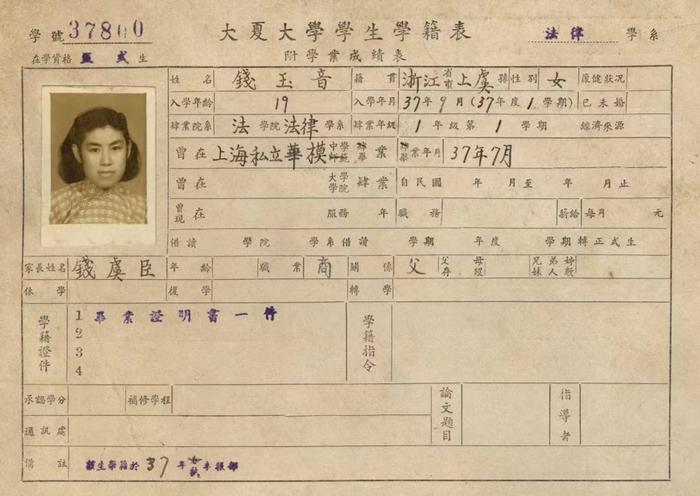 學號 37800 大夏大學學生學籍表 法律 學系
在學資格 正式 生 附學業成績表
姓名 錢玉音 籍貫 浙江 省市 上虞 縣 性別 女 康健狀況
入學年齡 19 入學年月 37年9月(37年度1學期) 已未婚
肄業院系 法 學院 法律 學系 肄業年級 1 年級第 1 學期 經濟來源
曾在 上海私立華模 中學師範 肄畢 業 肄畢業年月 37年7月
大學學院 肄業 自民國 年 月至 年 月止
曾現 在 服務 年 職務 薪給 每月 元
借讀 學院 學系借讀 學期 年度 學期轉正式生
家長姓名 錢虞臣 年齡 職業 商 關係 父 父存 母歿 兄弟姊妹人數
休學 復學 轉學
學籍證件 1 畢業證明書一件 學籍指令
2
3
4
承認學分 補修學程 論文題目 指導者
通訊處
備註 該生學籍於37年秋季報部